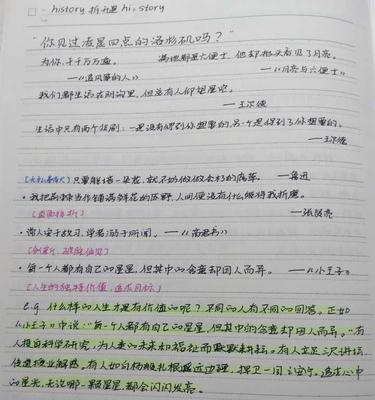 history 拆开是 hi, story
"你见过凌晨四点的洛杉矶吗?"
为你,千千万万遍。 满地都是六便士,他却抬头看见了月亮。
——《追风筝的人》 ——《月亮与六便士》
我们都生活在阴沟里,但总有人仰望星空。
——王尔德
生活中只有两个悲剧:一是没有得到你想要的,另一个是得到了你想要的。
——王尔德
只要能培一朵花,就不妨做做会朽的腐草。 ——鲁迅
·我把荆棘当作铺满鲜花的原野,人间便没有什么能将我折磨。
[直面挫折] ——张贤亮
·常人安于故习,学者溺于所闻。——《商君书》
[创新,破除偏见]
·每一个人都有自己的星星,但其中的含意却因人而异。——《小王子》
[人生的独特价值,追求目标]
e.g. 什么样的人生才是有价值的呢?不同的人有不同的回答。正如
《小王子》中说:"每一个人都有自己的星星,但其中的含意却因人而异。"有
人投身科学研究,为人类的未来和福祉而默默耕耘。有人立足三尺讲坛,
传道授业解惑。有人如白杨般扎根遥远边疆,捍卫一国之安宁。追求心中
的星光,无论哪一颗星星,都会闪闪发亮。